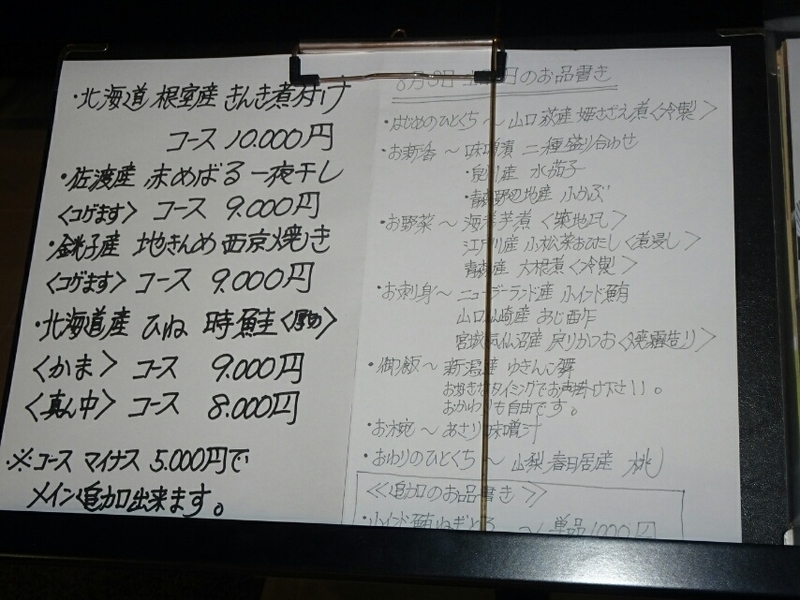 ・北海道 根室産 きんき煮付け
コース 10.000円
・佐渡産 赤めばる 一夜干し
〈コゲます〉 コース 9.000円
・銚子産 地きんめ 西京焼き
〈コゲます〉 コース 9.000円
・北海道産 ひね 時鮭〈厚切〉
〈かま〉 コース 9.000円
〈真ん中〉 コース 8.000円
※コース マイナス 5.000円で
メイン追加出来ます。
のお品書き
・はじめのひとくち～ 山口 萩産 姫さざえ煮〈冷製〉
・お新香 ～ 味噌漬 二種盛り合わせ
・泉州産 水茄子
・青森野辺地産 小かぶ
・お野菜～ 海老芋煮〈築地〉
江戸川産 小松菜おひたし〈煮浸し〉
青森産 大根煮〈冷製〉
・お刺身～ ニュージーランド産 小インド鮪
山口 産 あじ
宮城 気仙沼産 戻りかつお〈焼霜造り〉
・御飯～ 新潟産 ゆきんこ舞
お好きなタイミングでお声掛け下さい。
おかわりも自由です。
・お椀～ あさり味噌汁
・おわりのひとくち～ 山梨 春日居産 桃
≪追加のお品書き≫
・小インド鮪ねぎとろ ～ 単品1000円